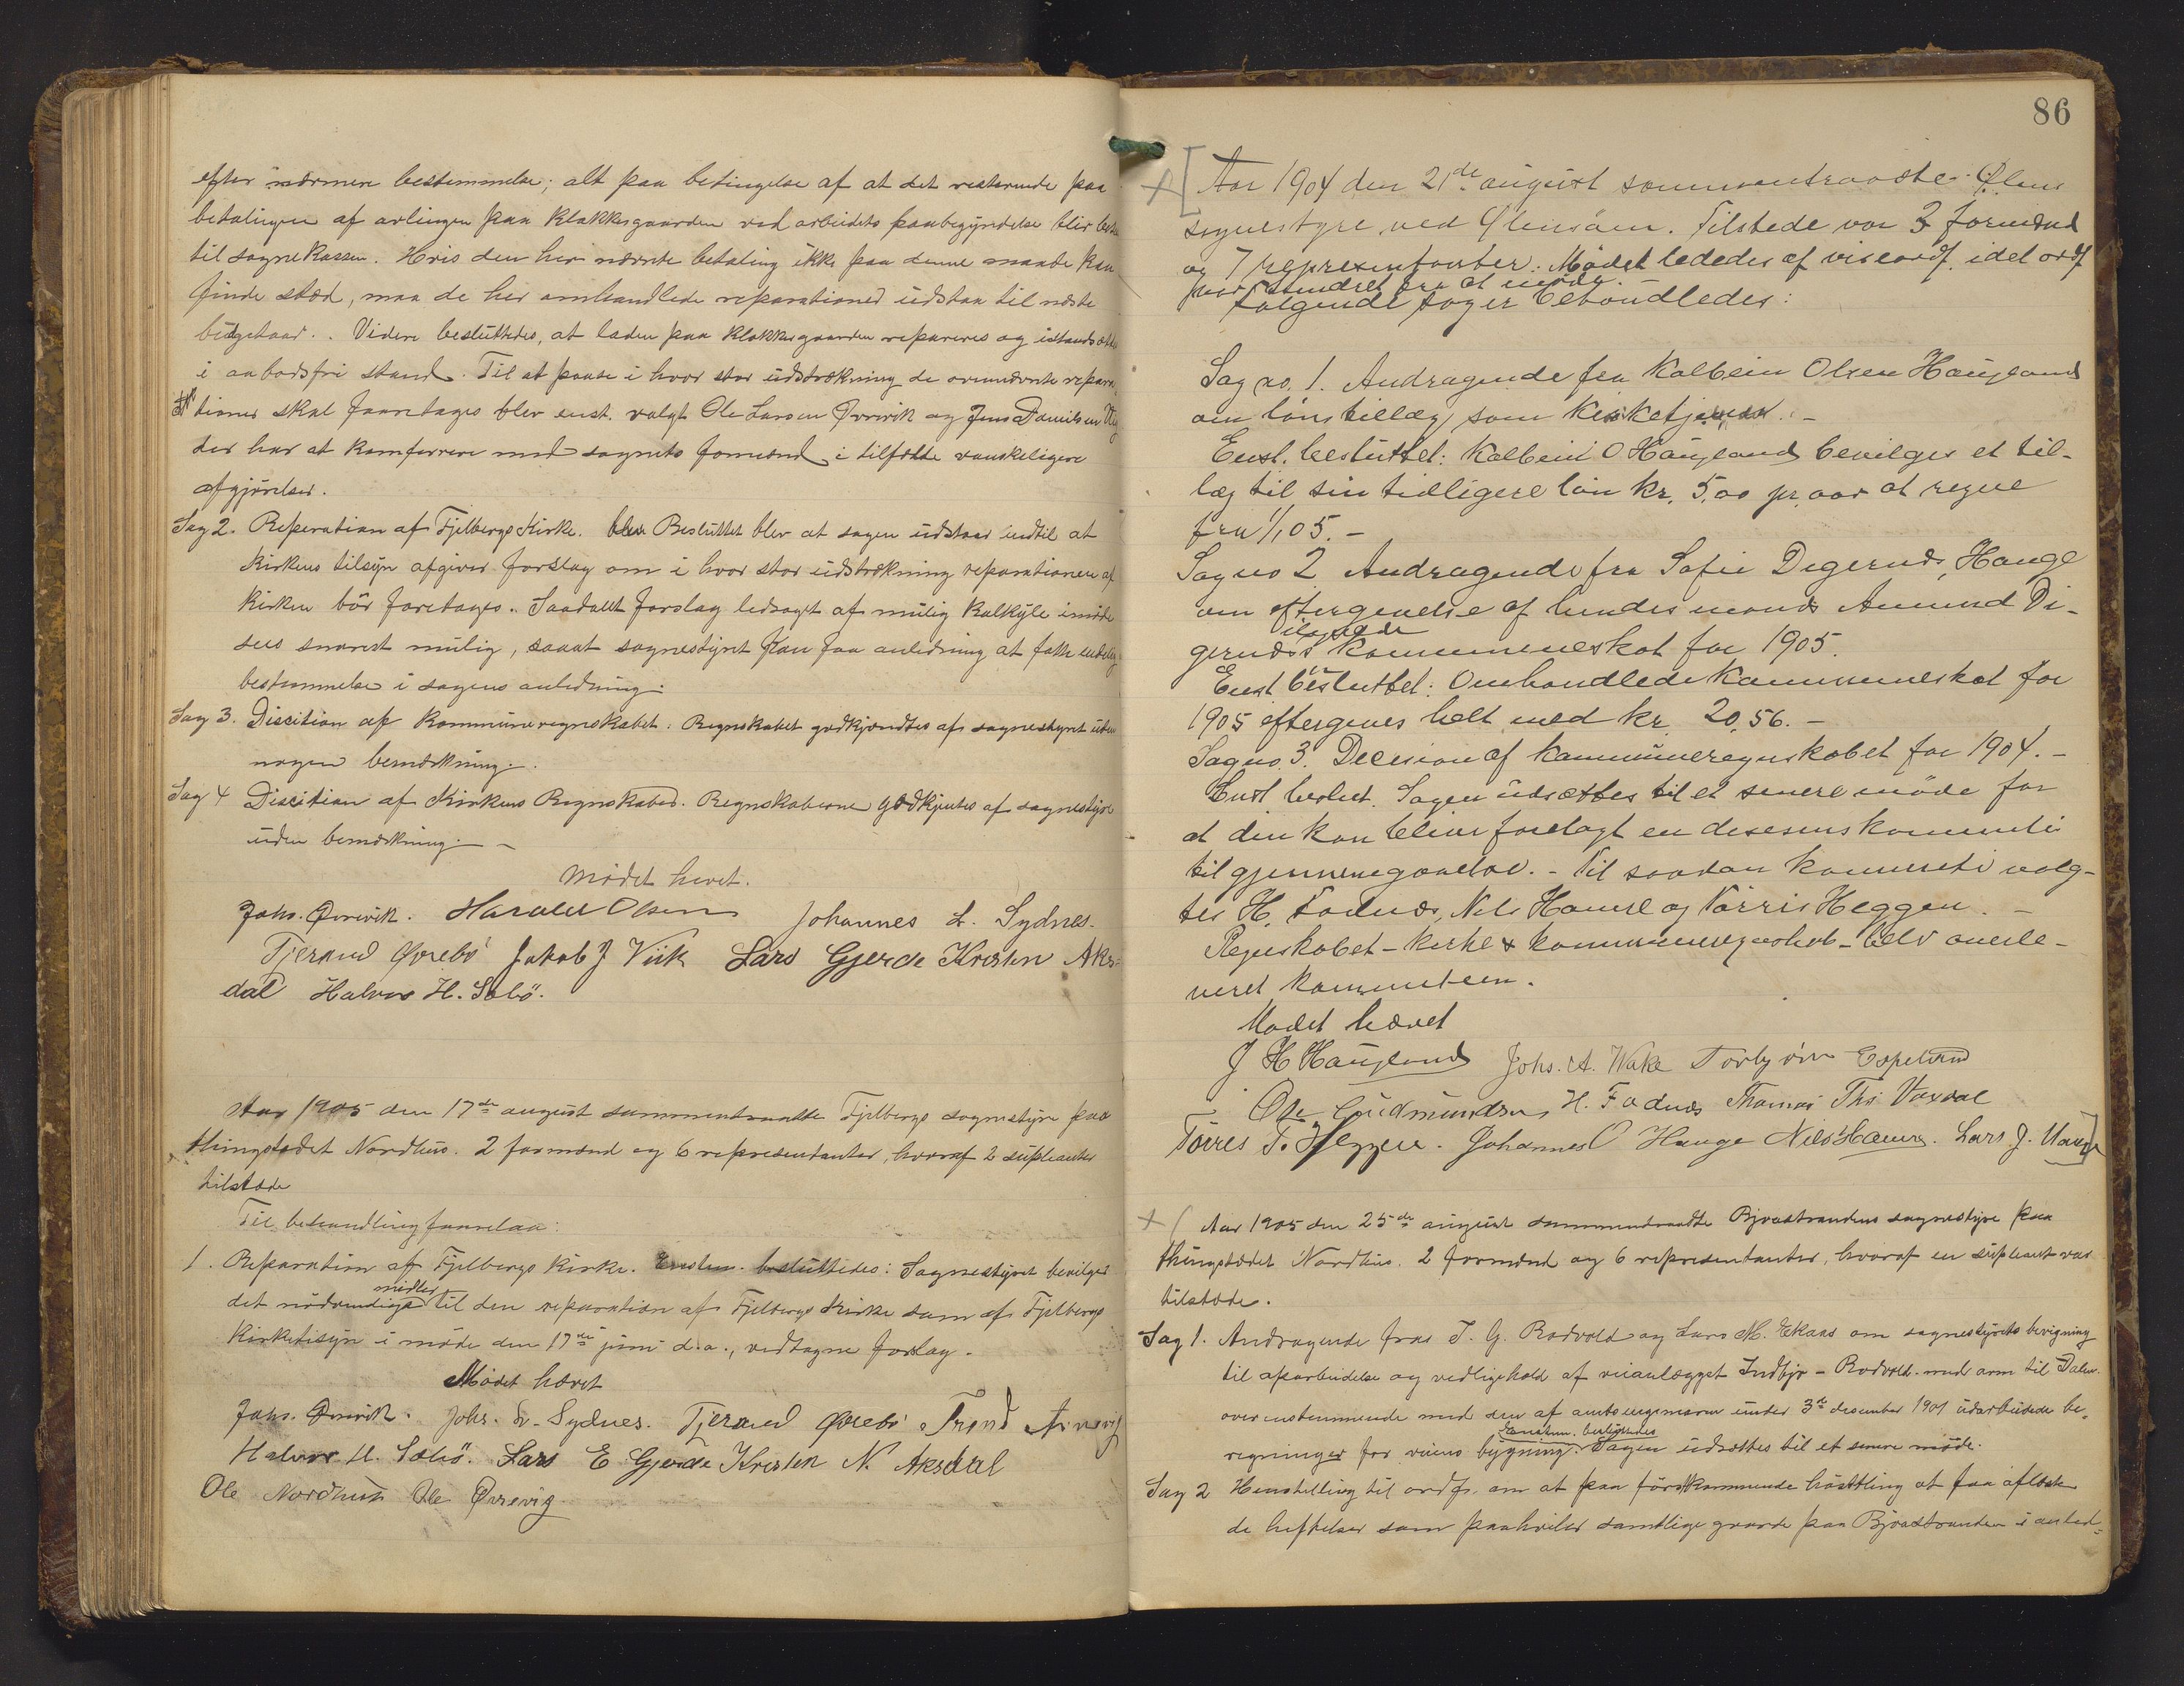 efter nærmere bestemmelse; alt paa betingelse af at det resterende paa
betalingen af avlingen paa Klokkergaarden ved arbeidets paabegyndelse blir
til sognekassen. Hvis den her nævnte betaling ikke paa denne maate kan
finde sted, maa de her omhandlede reparationer udstaa til næste
budgetaar. Videre besluttedes, at laden paa Klokkergaarden repareres og istandsættes
i aabodsfri stand. Til at paase i hvor stor udstrækning de ovennævnte repara-
tioner skal foretages blev enst. valgt Ole Larsen Øvrevik og Jens Danielsen
der har at komferrere med sognets formænd i tilfælde vanskeligere
afgjørelser.
Sag 2. Reperation af Fjelbergs Kirke. blev Besluttet blev at sagen udstaar indtil at
Kirkens tilsyn afgiver forslag om i hvor stor udstrækning reparationen af
Kirken bør foretages. Saadant forslag ledsaget af mulig kalkyle imøde
sees snarest mulig, saaat sognestyret kan faa anledning at fatte endelig
bestemmelse i sagens anledning.
Sag 3. Discition af Kommuneregnskabet. Regnskabet godkjendtes af sognestyret uden
nogen bemærkning.
Sag 4 Discition af Kirkens Regnskaber. Regnskaberne godkjentes af sognestyre
uden bemærkning. –
Mødet hevet.
Johs. Øvrevik. Harald Olsen Johannes L. Sydnes.
Tjerand Øvrebö Jakob J Viik Lars Gjerde Kristen Aks-
dal Halvor H. Sæbö.
Aar 1905 den 17de august sammentraadte Fjelbergs sognestyre paa
thingstedet Nordhus. 2 formænd og 6 representanter, hvoraf 2 supleanter
tilstede
Til behandling forelaa:
1. Reparation af Fjelbergs Kirke. Enstem. besluttedes: Sognestyret beviliger
midler
det nødvendige til den reparation af Fjelbergs Kirke som af Fjelbergs
Kirketilsyn i møde den 17de juni d.a., vedtagne forslag.
Mødet hævet
Johs. Øvrevik. Johs. L. Sydnes. Tjerand Øvrebö Trond Arnevig
Halvor H. Sæbö. Lars E Gjerde Kristen N. Aksdal
Ole Nordhus Ole Øvrevig
86
Aar 1904 den 21de august sammentraadte Ølens
sognestyre ved Ølensöen. Tilstede var 3 formænd
og 7 representanter. Mødet lededes af viseordf. idet ordf
var hindret fra at møde.
Følgende sager behandledes:
Sag no. 1. Andragende fra Kolbein Olsen Haugland
om lønstillæg som kirketjener. –
Enst. besluttet: Kolbein O Haugland bevilges et til-
læg til sin tidligere løn kr. 5,00 pr. aar at regne
fra 1/1 05. –
Sag no 2. Andragende fra Sofie Degernæs, Hauge
om eftergivelse af hendes mands Amund Di-
ilagede
gernæs kommuneskat for 1905.
Enst besluttet: Omhandlede Kommuneskat for
1905 eftergives helt med kr 20,56. –
Sag no. 3. Decision af kommuneregnskabet for 1904. –
Enst beslut. Sagen udsættes til et senere møde for
at den kan blive forelagt en desesions kommite
til gjennemgaaelse. – Til saadan kommite valg-
tes H. Fodnæs, Nils Hamre og Tørris Heggen. –
Regnskabet – kirke & kommuneregnskab – blev overle-
veret kommiteen.
Mødet hævet
J H Haugland Johs. A. Wake Torbjørn Espeland
Ole Gudmundsen H. Fodnæs Thomas Ths Vaxdal
Törres T. Heggen. Johannes O Hauge Nils Hamre. Lars J. Hauge
Aar 1905 den 25de august sammentraadte Bjoastrandens sognestyre paa
thingstedet Nordhus. 2 formænd og 6 representanter, hvoraf en supleant var
tilstede.
Sag 1. Andragende fra T. G. Rodvold og Lars M. Ekaas om sognestyrets bevigning
til oparbeidelse og vedligehold af veianlægget Indbjo – Rodvold. med arm til Dalen
overenstemmende med den af amtsingeniøren under 3de desember 1901 udarbeidede be-
Enstem. besluttedes
regninger for veiens bygning. Sagen udsættes til et senere møde.
Sag 2 Henstilling til ordf. om at paa førstkommende høstting at faa aflæste
de heftelser som paahviler samtlige gaarde paa Bjoastranden i anled-